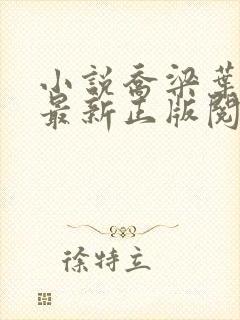 小説喬梁葉
最新正版閱
徐特立